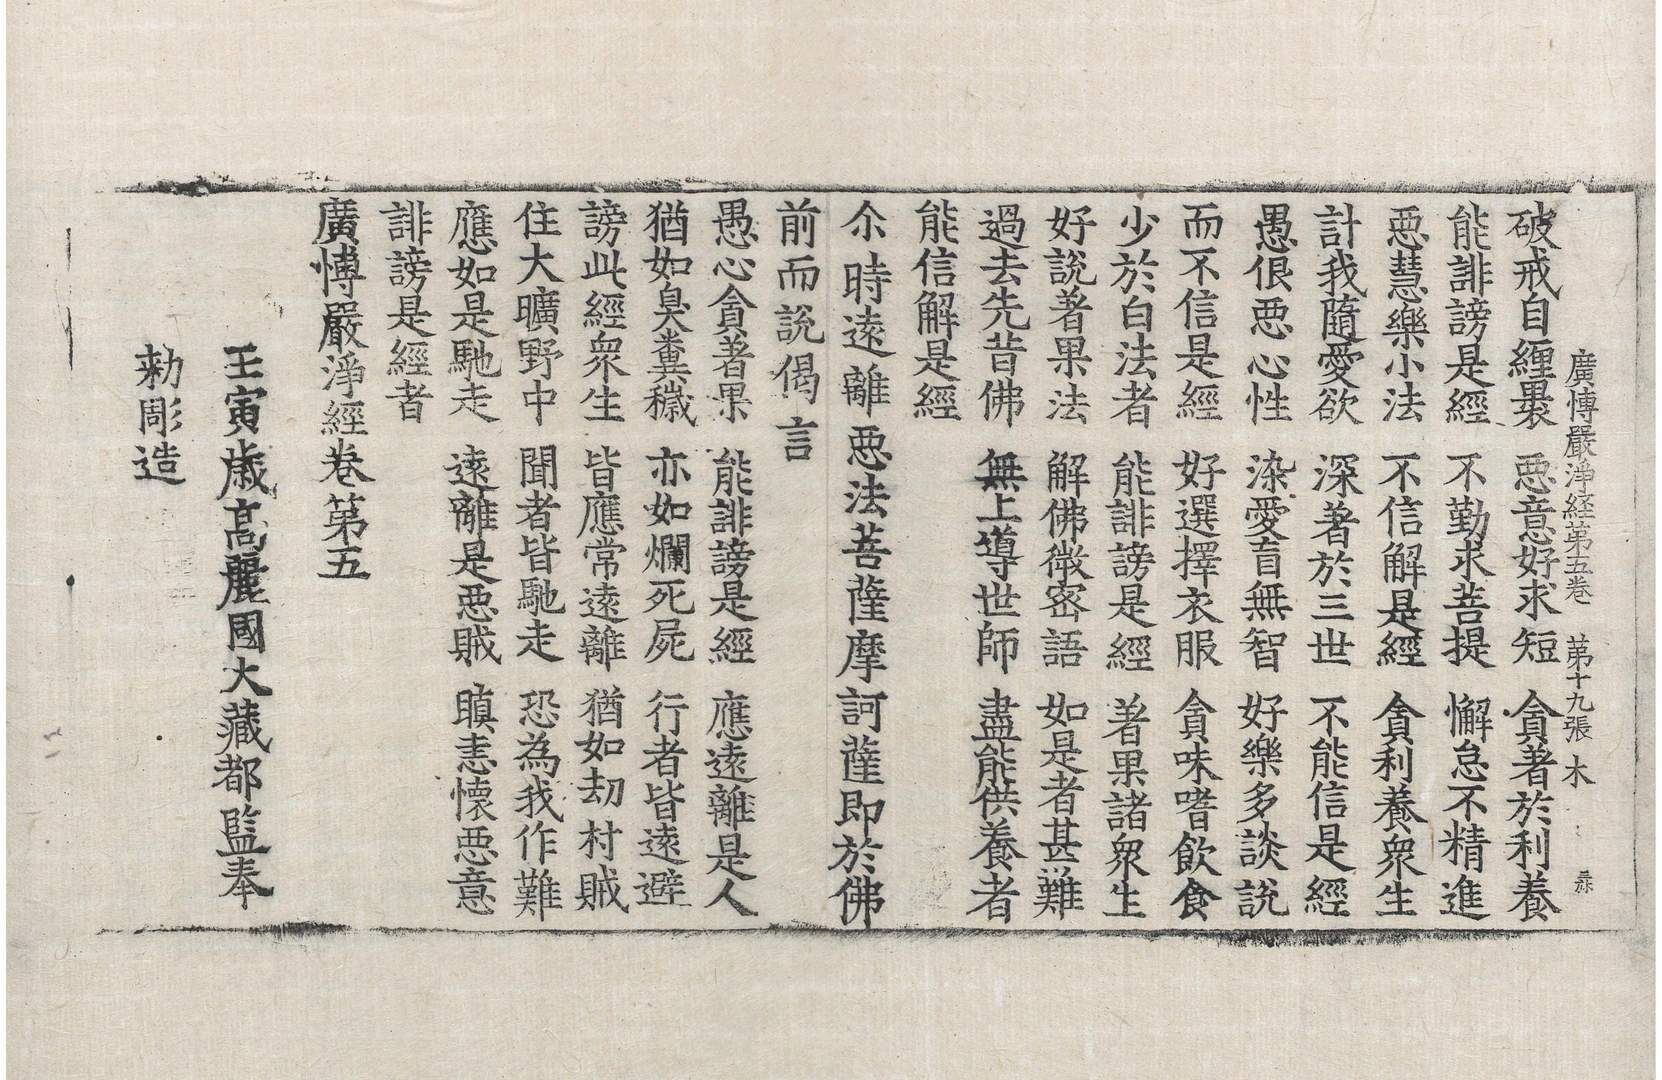 廣愽嚴淨経第五卷 第十九張 木
破戒自纏褁 惡意好求短 貪著於利養
能誹謗是經 不勤求菩提 懈怠不精進
惡慧樂小法 不信解是經 貪利養衆生
計我隨愛欲 深著於三世 不能信是經
愚佷惡心性 染愛盲無智 好樂多談說
而不信是經 好選擇衣服 貪味嗜飲食
少於白法者 能誹謗是經 著果諸衆生
好說著果法 解佛微密語 如是者甚難
過去先昔佛 無上導世師 盡能供養者
能信解是經
尒時遠離惡法菩薩摩訶薩即於佛
前而說偈言
愚心貪著果 能誹謗是經 應遠離是人
猶如臭糞穢 亦如爛死屍 行者皆遠避
謗此經衆生 皆應常遠離 猶如劫村賊
住大曠野中 聞者皆馳走 恐為我作難
應如是馳走 遠離是惡賊 瞋恚懷惡意
誹謗是經者
廣愽嚴淨經卷第五
壬寅歲高麗國大藏都監奉
勑彫造